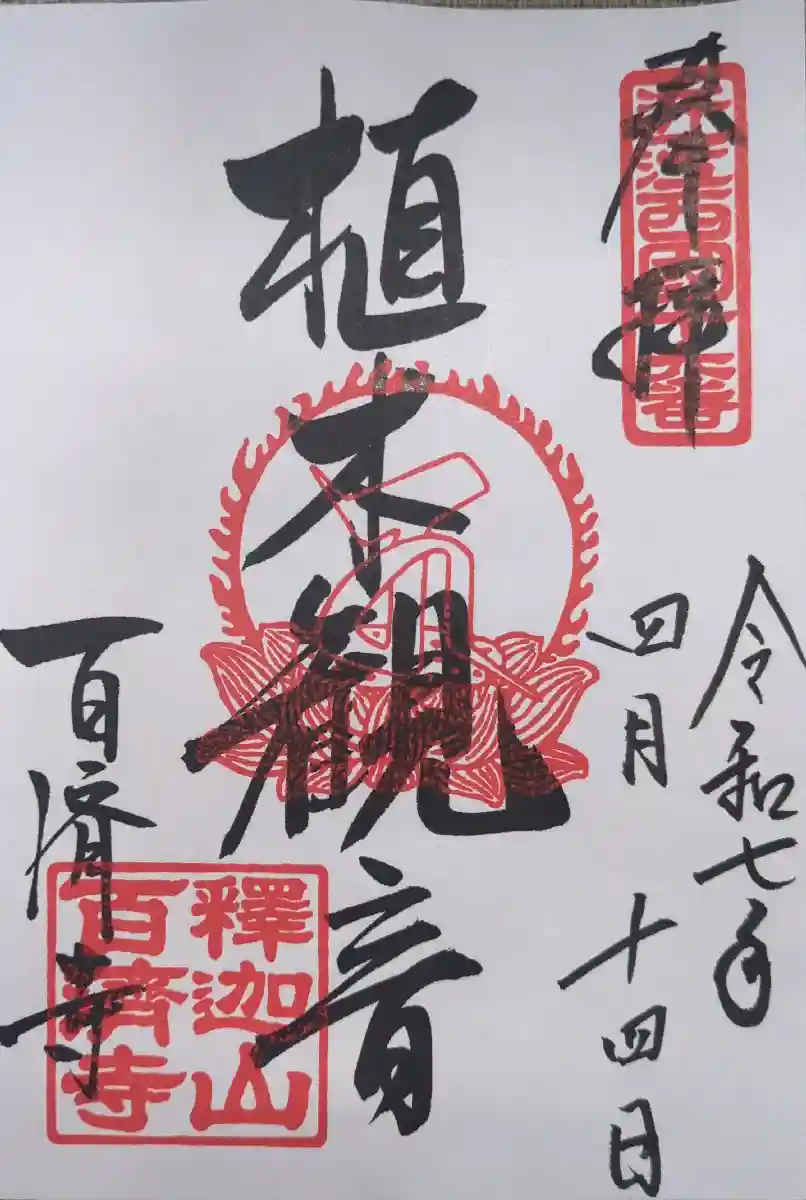 奉拝
令和七年
四月十四日
植木観音
百済寺
釋迦山
百濟寺